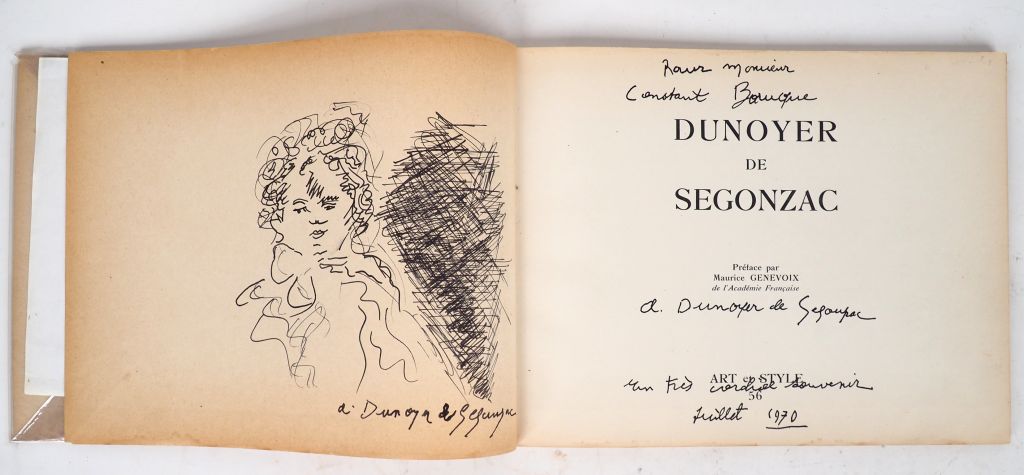 a. Dunoyer de Segonzac
Pour Monsieur
Constant Bouuque
DUNOYER
DE
SEGONZAC
Préface par
Maurice GENEVOIX
de l'Académie Française
a. Dunoyer de Segonzac
ART et STYLE
56
un très cordial souvenir
Juillet 1970